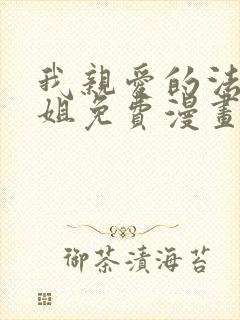 我親愛的法
姐免費漫畫
御茶漬海苔